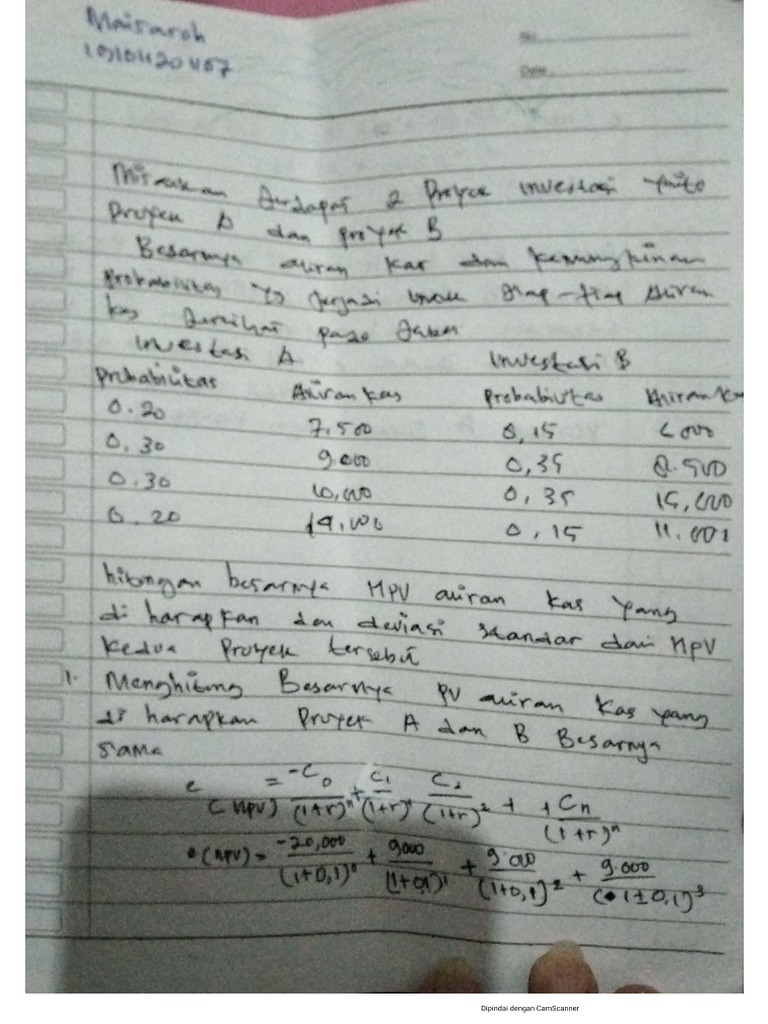 Maisaroh
No
Date
Misalkan terdapat 2 Proyek investasi yaitu
Proyek A dan proyek B
Besarnya aliran kas dan kemungkinan
Probabilitas yg terjadi untuk tiap-tiap Aliran
kas terlihat pada
Investasi A Investasi B
Probabilitas Aliran kas Probabilitas Aliran
0.20 7.500 0,15
0.30 9.000 0,35 8.500
0.30 10,000 0,35
0.20 0,15
hitungan besarnya NPV aliran kas yang
di harapkan dan deviasi standar dari NPV
kedua Proyek tersebut
1. Menghitung Besarnya PV aliran kas yang
di harapkan Proyek A dan B Besarnya
sama
e (NPV) = -C0/(1+r)^n + C1/(1+r)^1 C2/(1+r)^2 + + Cn/(1+r)^n
e(NPV) = -20,000/(1+0,1)^0 + 9000/(1+0,1)^1 + 9.000/(1+0,1)^2 + 9.000/(1+0,1)^3
Dipindai dengan CamScanner